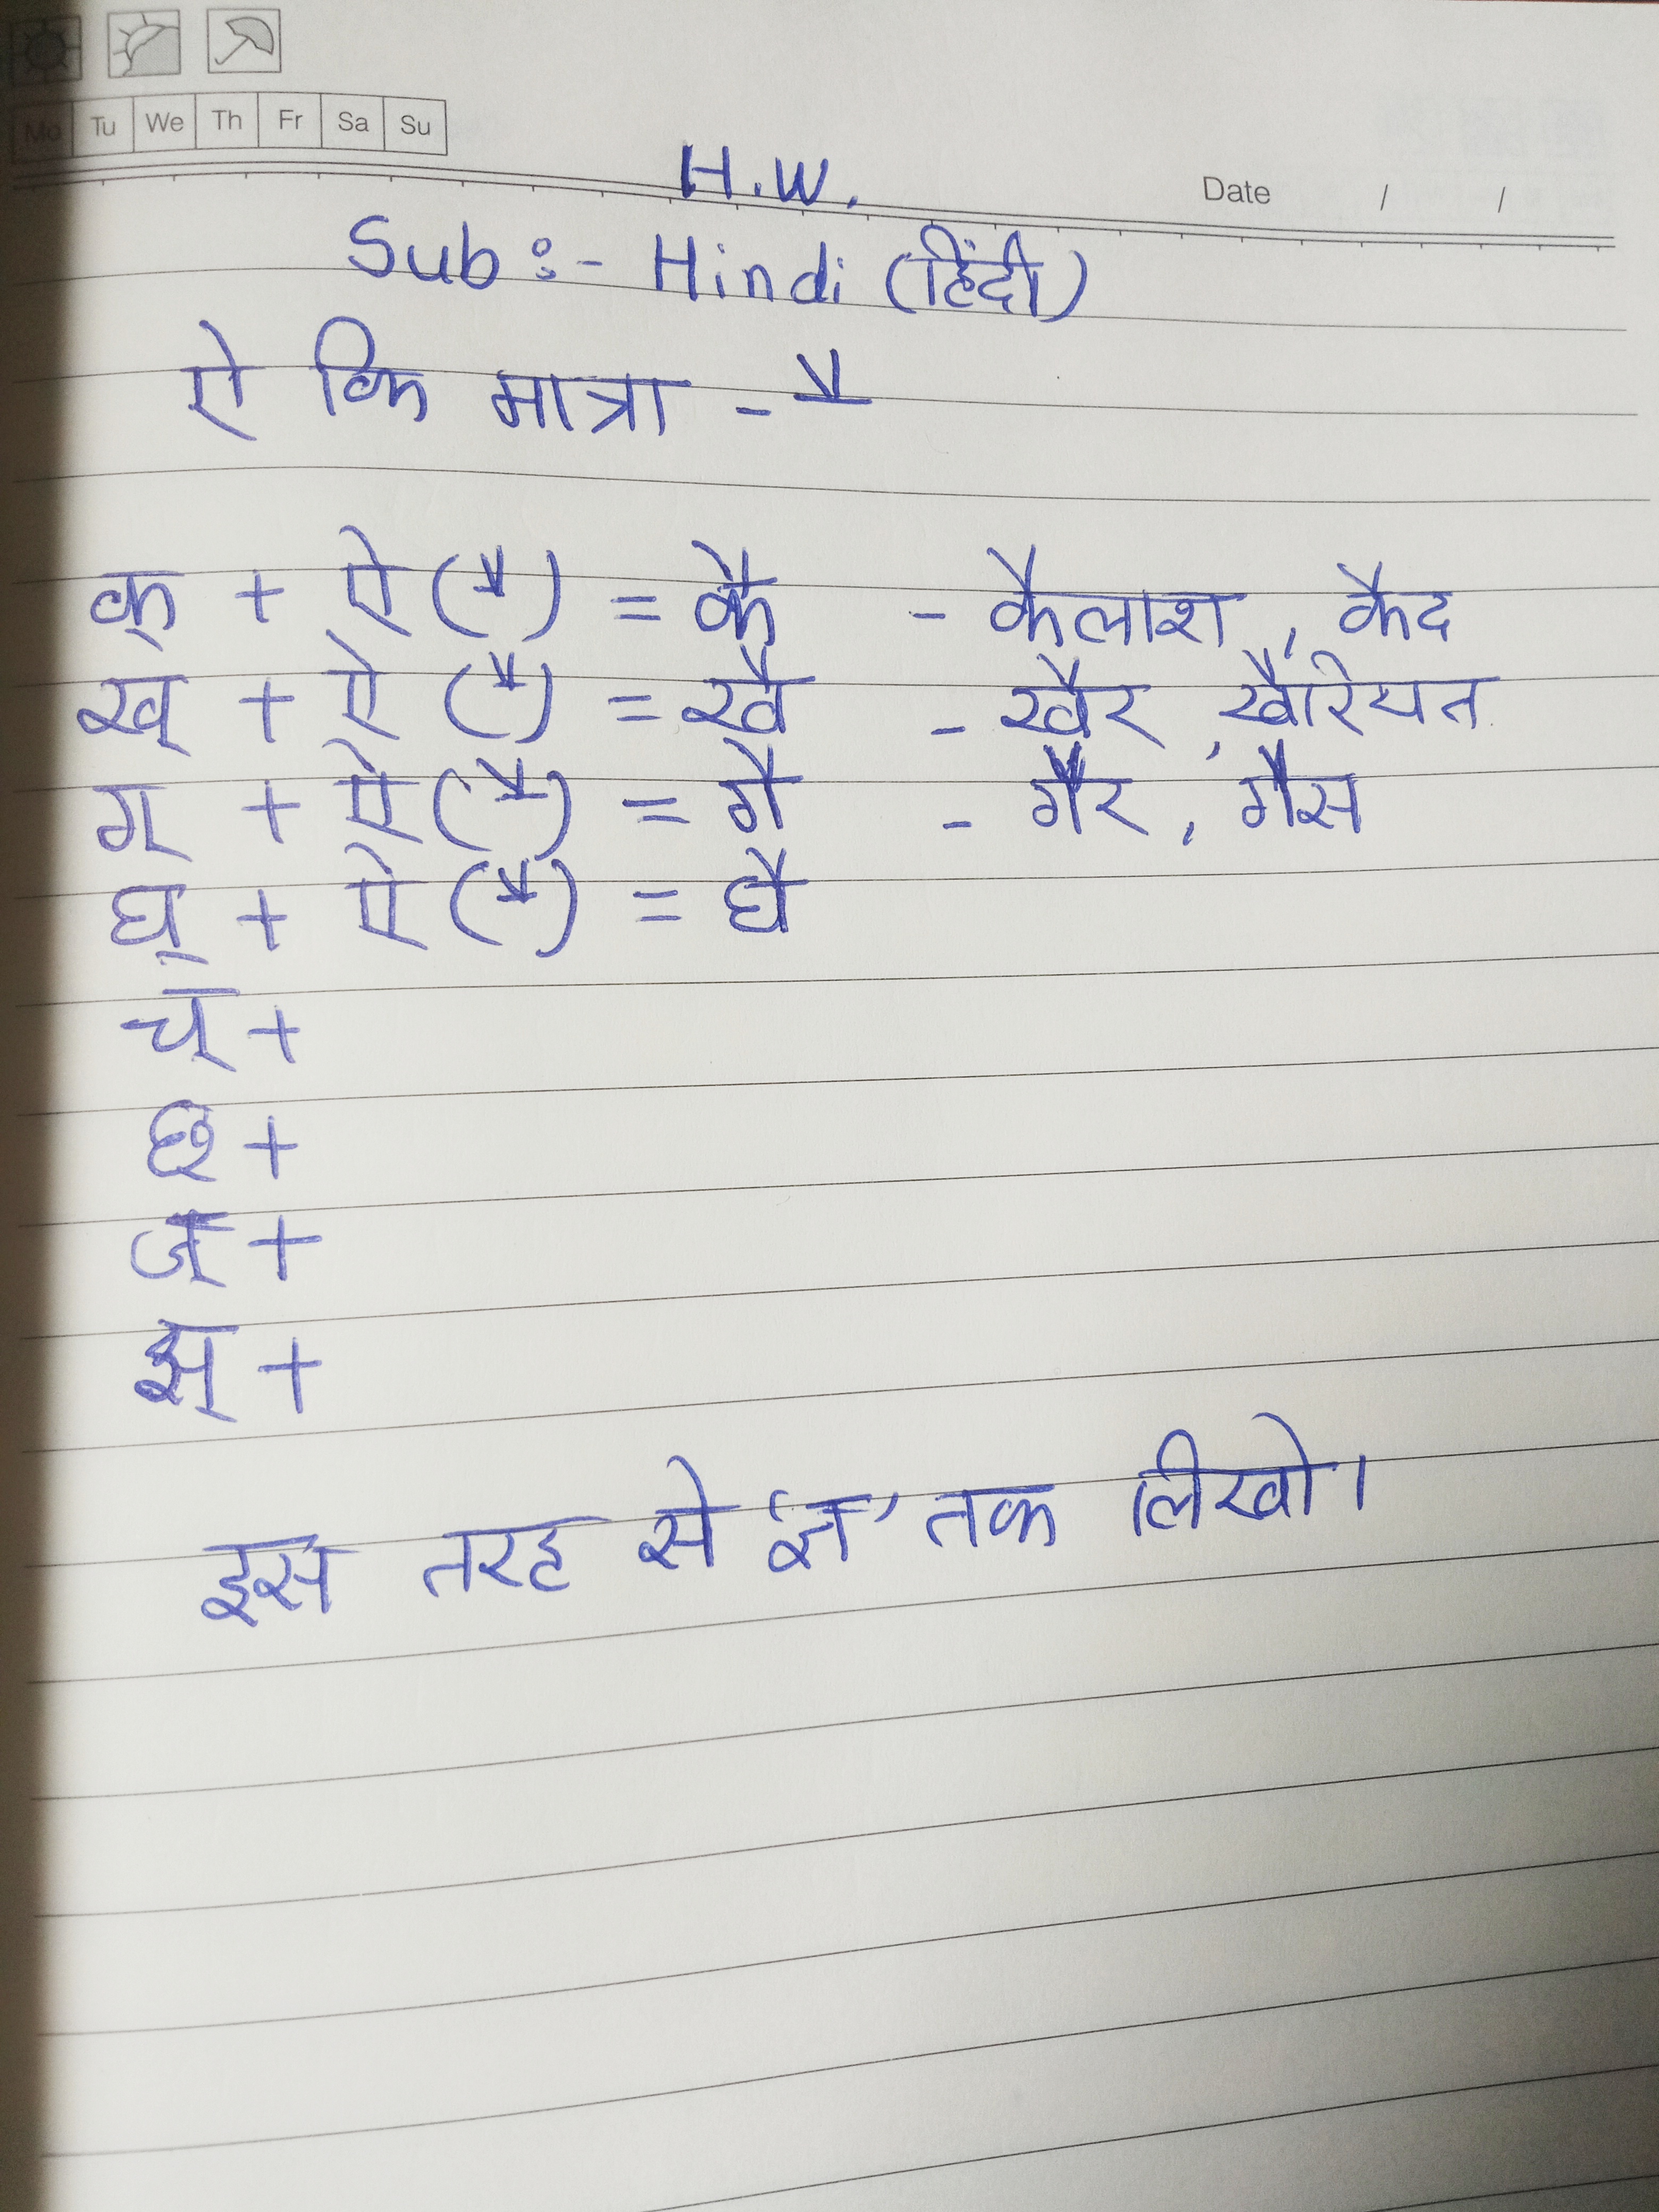 Mo Tu We Th Fr Sa Su
H.W.
Date / /
Sub :- Hindi (हिंदी)
ऐ कि मात्रा - ै
क् + ऐ (ै) = कै - कैलाश, कैद
ख् + ऐ (ै) = खै - खैर, खैरियत
ग् + ऐ (ै) = गै - गैर, गैस
घ् + ऐ (ै) = घै
च् +
छ् +
ज् +
झ् +
इस तरह से 'ज्ञ' तक लिखो।